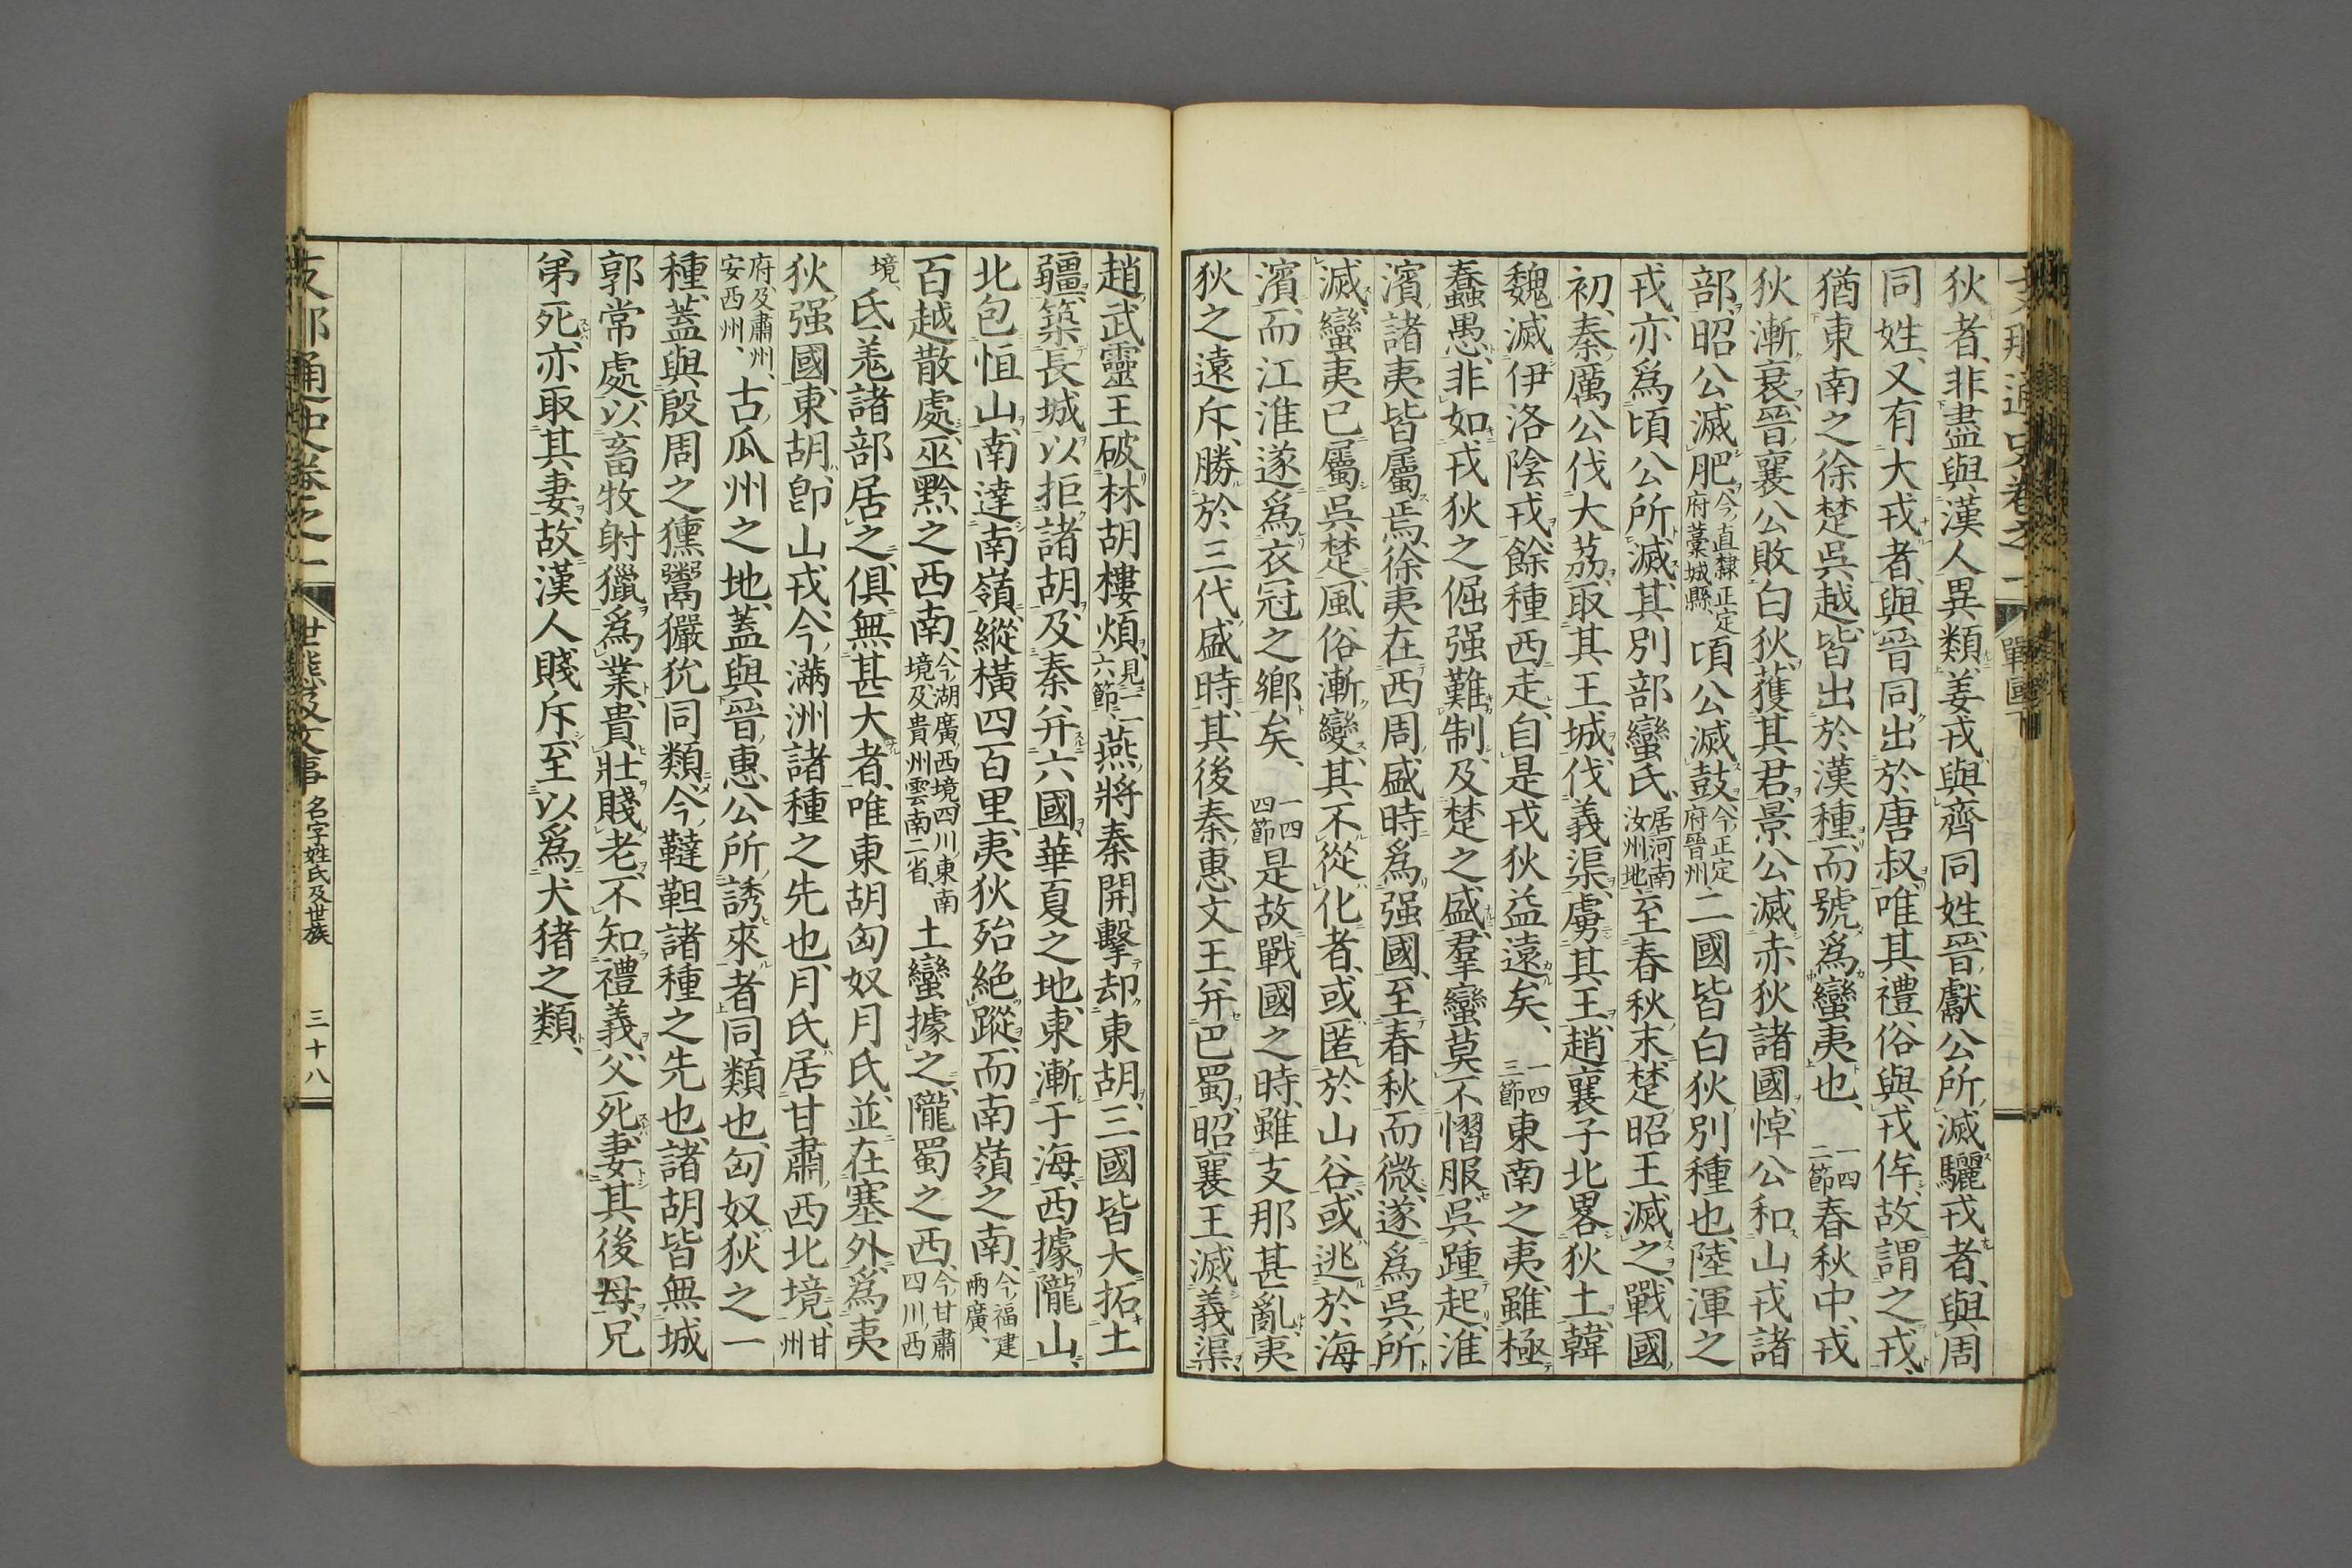 狄者、非盡與漢人異類、姜戎與齊同姓、晉獻公所滅驪戎者、與周
同姓、又有大戎者、與晉同出於唐叔、唯其禮俗與戎侔、故謂之戎、
猶東南之徐楚吳越、皆出於漢種、而號爲蠻夷也、一四二節春秋中、戎
狄漸衰、晉襄公敗白狄、獲其君、景公滅赤狄諸國、悼公和山戎諸
部、昭公滅肥、今直隸正定府藁城縣、頃公滅鼓、今正定府晉州二國皆白狄別種也、陸渾之
戎、亦爲頃公所滅、其別部蠻氏、居河南汝州地至春秋末、楚昭王滅之、戰國
初、秦厲公伐大荔、取其王城、伐義渠、虜其王、趙襄子北畧狄土、韓
魏滅伊洛陰戎、餘種西走、自是戎狄益遠矣、一四三節東南之夷、雖極
蠢愚、非如戎狄之倔强難制、及楚之盛、羣蠻莫不慴服、吳踵起、淮
濱諸夷皆屬焉、徐夷在西周盛時爲强國、至春秋而微、遂爲吳所
滅、蠻夷已屬吳楚、風俗漸變、其不從化者、或匿於山谷、或逃於海
濱、而江淮遂爲衣冠之鄉矣、一四四節是故戰國之時、雖支那甚亂、夷
狄之遠斥、勝於三代盛時、其後秦惠文王、幷巴蜀、昭襄王滅義渠、
趙武靈王破林胡樓煩、見一一六節、燕將秦開擊却東胡、三國皆大拓土
疆、築長城、以拒諸胡、及秦幷六國、華夏之地、東漸于海、西據隴山、
北包恒山、南達南嶺、縱橫四百里、夷狄殆絶蹤、而南嶺之南、今福建兩廣、
百越散處、巫黔之西南、今湖廣西境、四川東南境、及貴州雲南二省、土蠻據之、隴蜀之西、今甘肅四川西
境、氐羌諸部居之、俱無甚大者、唯東胡匈奴月氏、並在塞外、爲夷
狄强國、東胡、卽山戎、今滿洲諸種之先也、月氏、居甘肅西北境、甘州
府、及肅州、安西州、古瓜州之地、蓋與晉惠公所誘來者同類也、匈奴、狄之一
種、蓋與殷周之獯鬻玁狁同類、今韃靼諸種之先也、諸胡皆無城
郭常處、以畜牧射獵爲業、貴壯賤老、不知禮義、父死、妻其後母、兄
弟死、亦取其妻、故漢人賤斥、至以爲犬豬之類、
支那通史卷之一 世態及文事 名字姓氏及世族 三十八